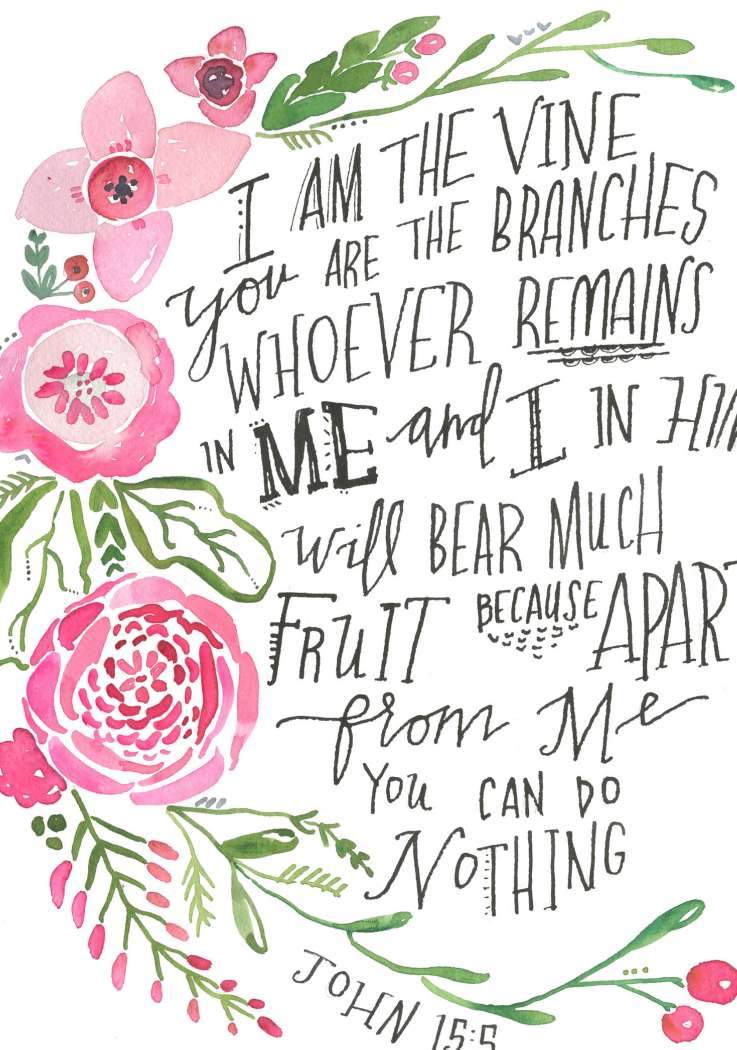 I AM THE VINE
you ARE THE BRANCHES
WHOEVER REMAINS
IN ME and I IN HIM
will BEAR MUCH
FRUIT BECAUSE APART
from Me
YOU CAN DO
NOTHING
JOHN 15:5